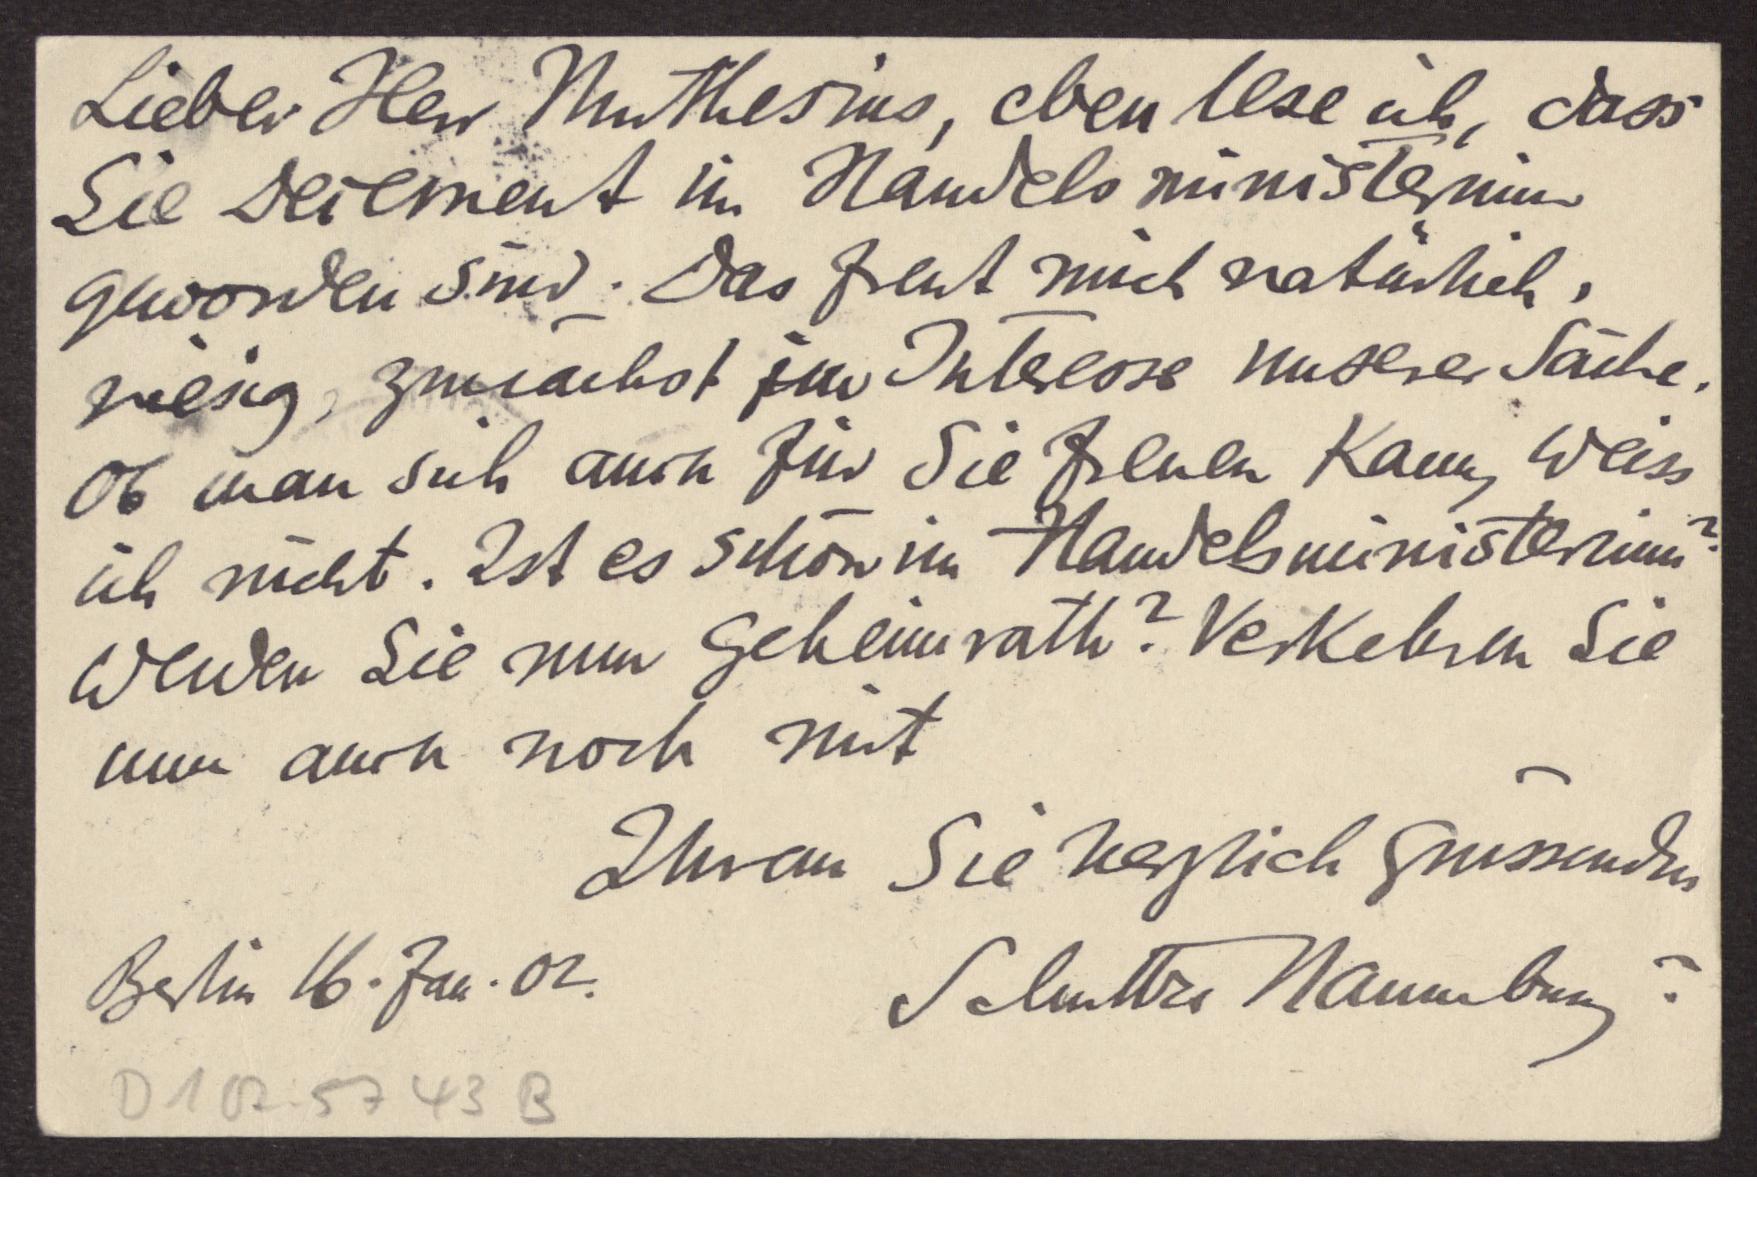 Lieber Herr Muthesius, eben lese ich, dass
Sie Decernent im Handelsministerium
geworden sind. Das freut mich natürlich,
riesig, zunächst im Interesse unserer Sache.
Ob man sich auch für Sie freuen kann, weiss
ich nicht. Ist es schön im Handelsministerium?
Werden Sie nun Geheimrath? Verkehren Sie
nun auch noch mit
Ihrem Sie herzlich grüssenden
Berlin 16. Jan. 02. Schultze Naumburg?
D 102-5743 B